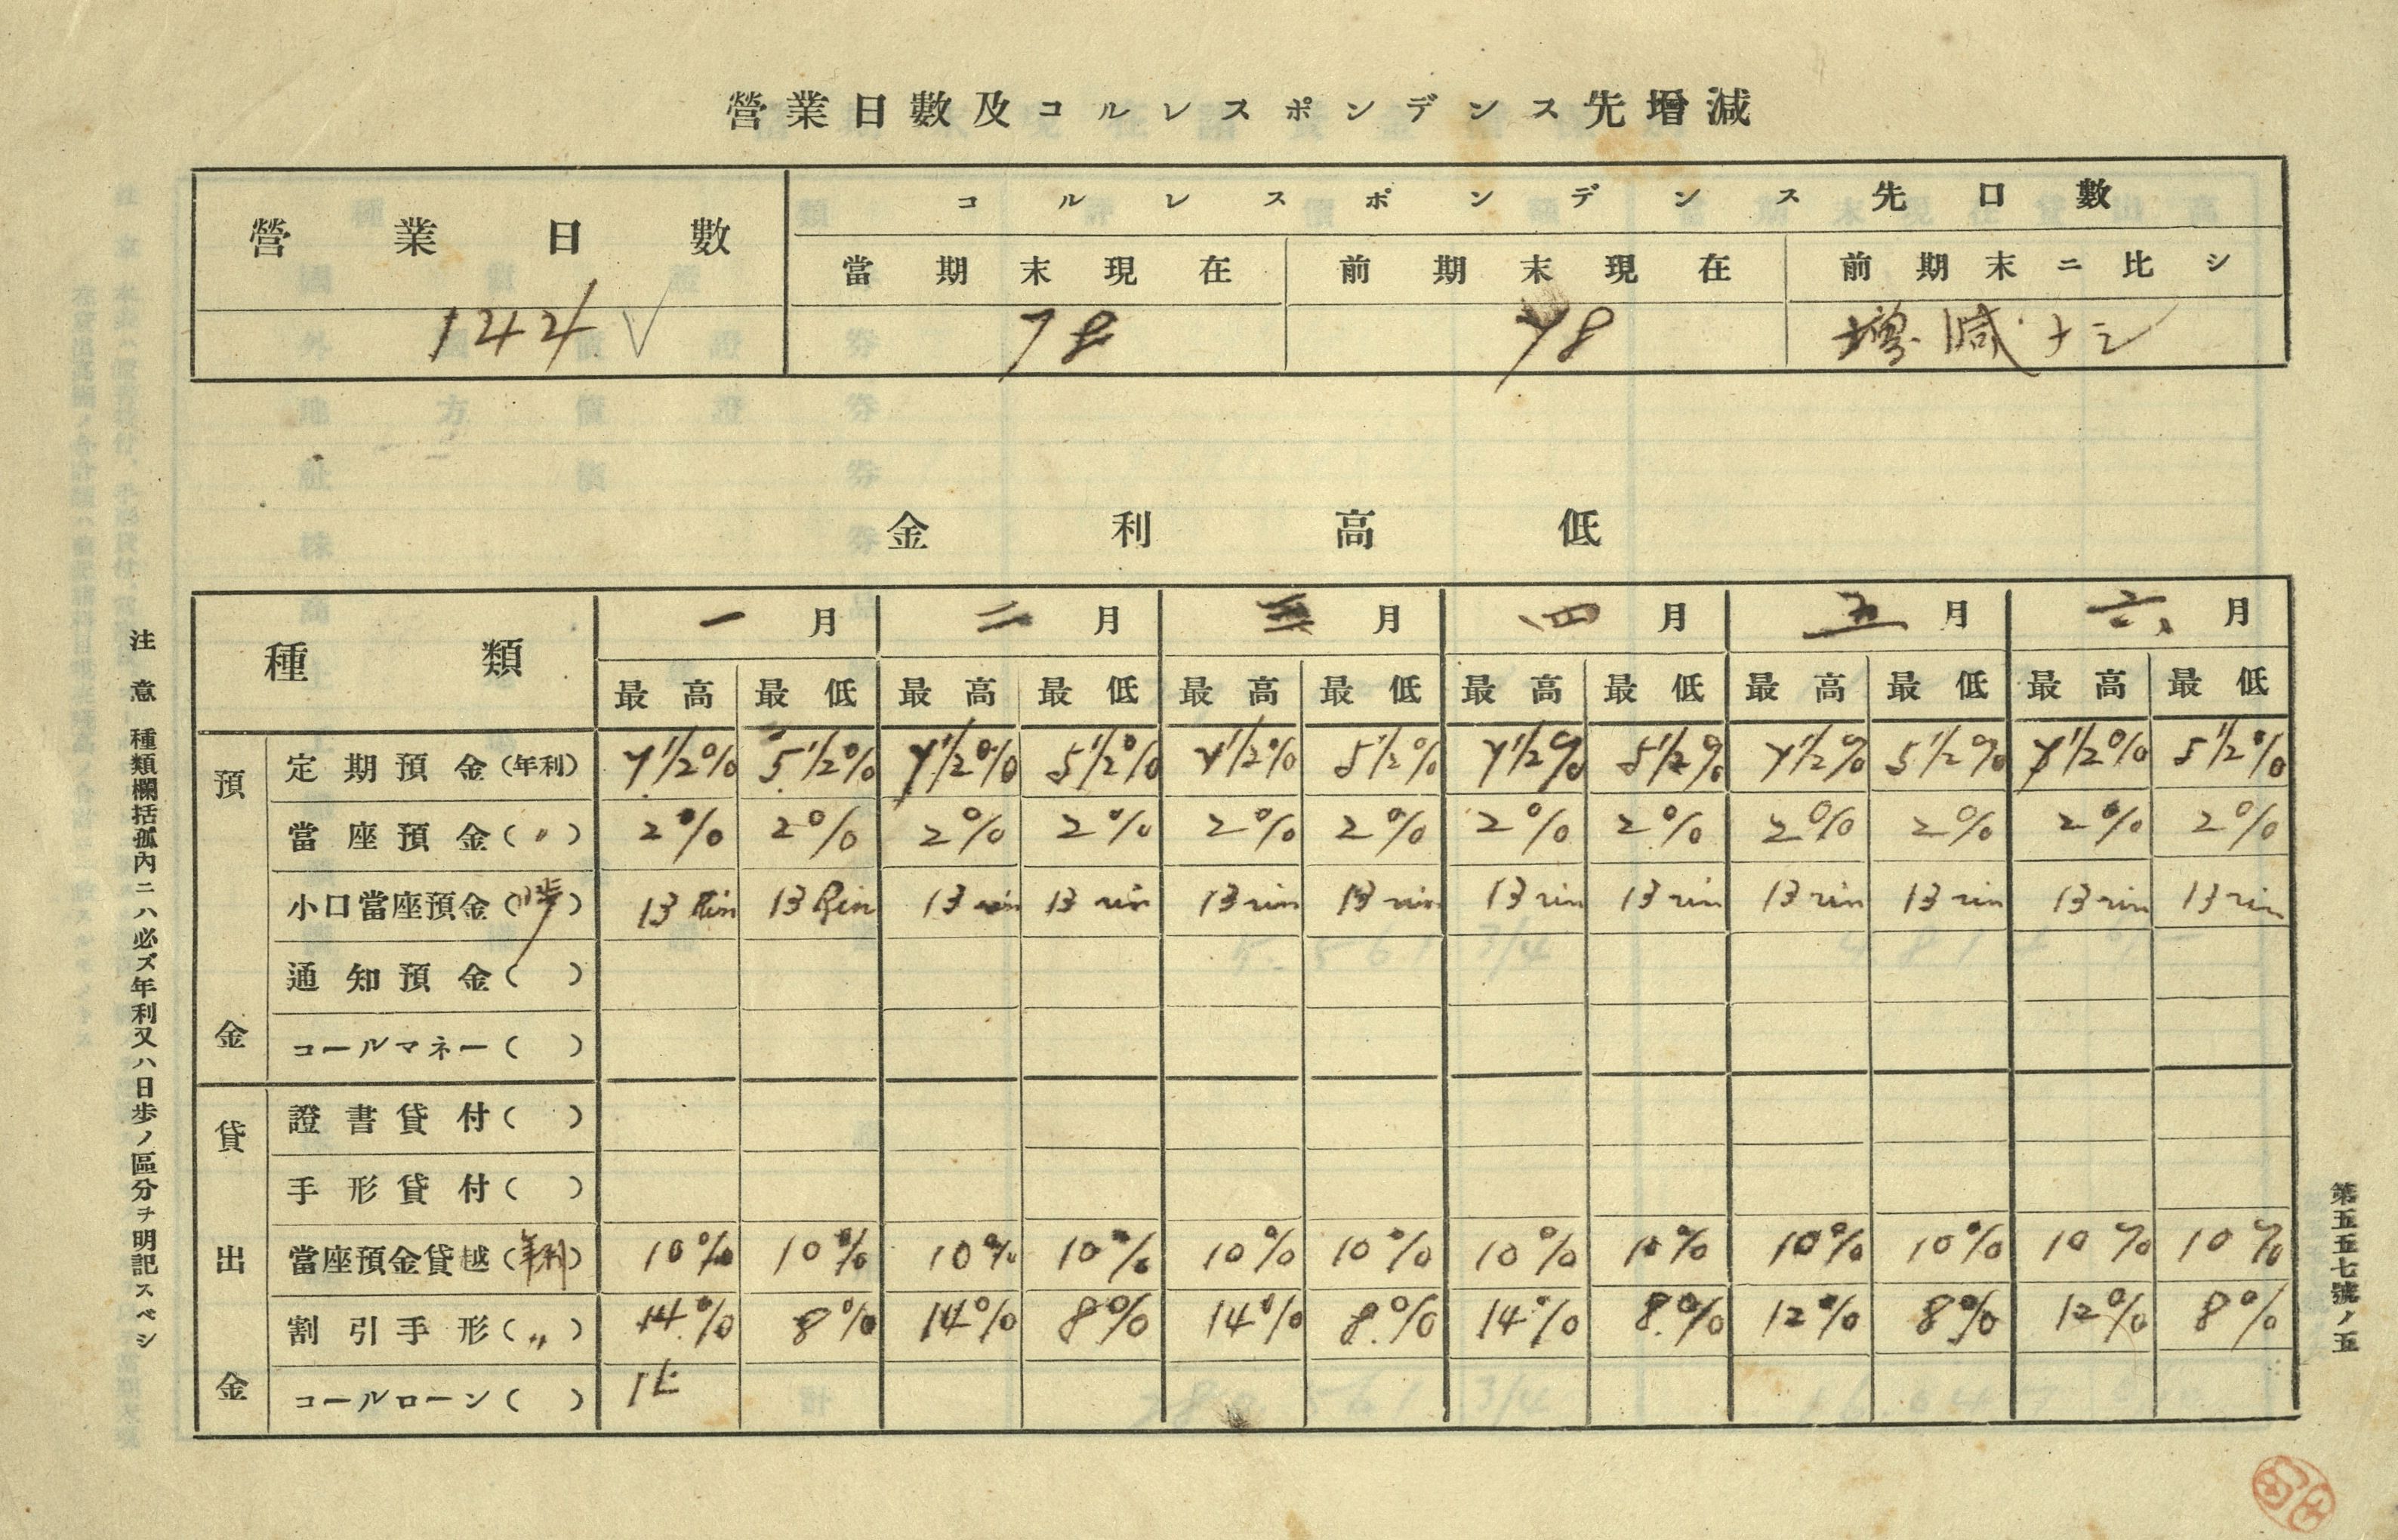 營業日數及コルレスポンデンス先增減
營業日數
コルレスポンデンス先口數
當期末現在 前期末現在 前期末ニ比シ
144 78 78 增減ナシ
金利高低
種類 一月 二月 三月 四月 五月 六月
最高 最低 最高 最低 最高 最低 最高 最低 最高 最低 最高 最低
預金
定期預金(年利) 7 1/2% 5 1/2% 7 1/2% 5 1/2% 7 1/2% 5 1/2% 7 1/2% 5 1/2% 7 1/2% 5 1/2% 7 1/2% 5 1/2%
當座預金(〃) 2% 2% 2% 2% 2% 2% 2% 2% 2% 2% 2% 2%
小口當座預金(日步) 13 Rin 13 Rin 13 rin 13 rin 13 rin 13 rin 13 rin 13 rin 13 rin 13 rin 13 rin 13 rin
通知預金( )
コールマネー( )
貸出金
證書貸付( )
手形貸付( )
當座預金貸越(年利) 10% 10% 10% 10% 10% 10% 10% 10% 10% 10% 10% 10%
割引手形(〃) 14% 8% 14% 8% 14% 8% 14% 8% 12% 8% 12% 8%
コールローン( )
注意 種類欄括孤內ニハ必ズ年利又ハ日歩ノ區分ヲ明記スベシ
第五五七號ノ五